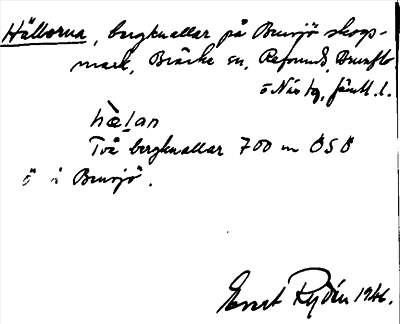 Hällorna, bergknallar på Bensjö skogs-
mark, Bräcke sn, Refsunds, Brunflo
o Näs tg, Jämtl. l.
hæ̀lan
Två bergknallar 700 m ÖSÖ
ö i Bensjö.
Ernst Rydén 1946.